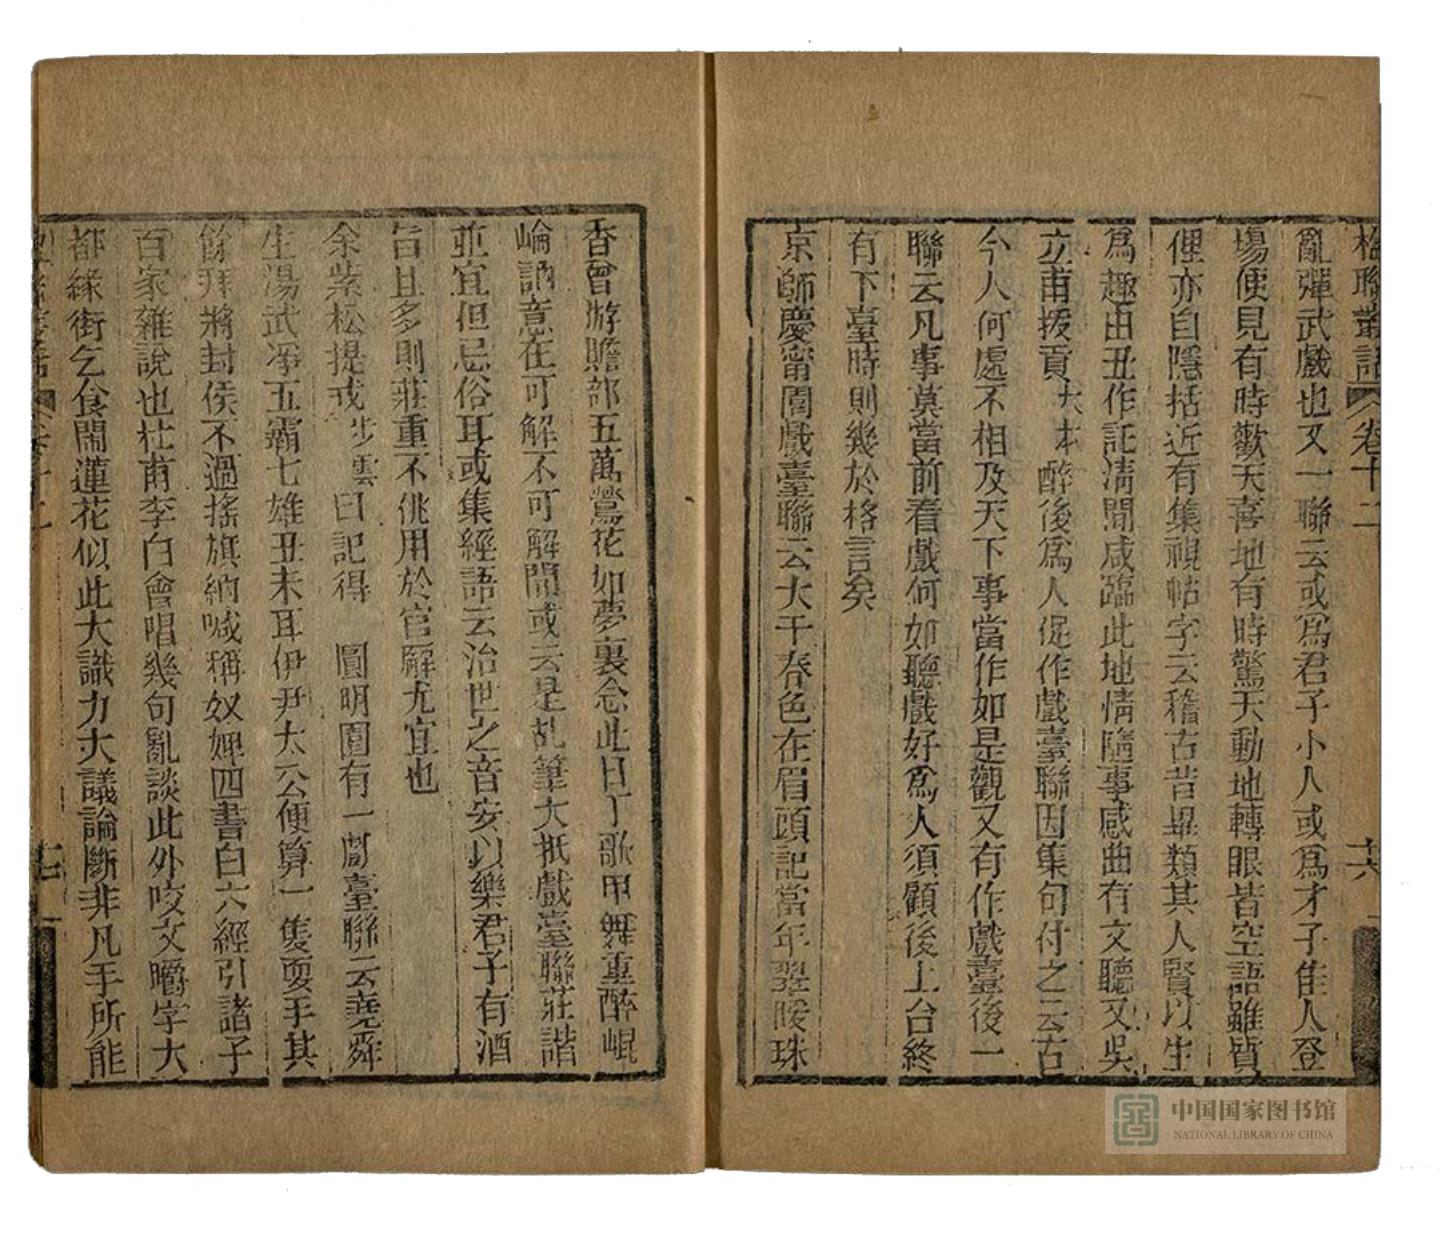 楹聯叢話 卷十二 十六
亂彈武戲也又一聯云或爲君子小人或爲才子佳人登
場便見有時歡天喜地有時驚天動地轉眼皆空語雖質
俚亦自隱括近有集視帖字云稽古昔畢類其人賢以生
爲趣由丑作託淸聞咸臨此地情隨事感曲有文聽又吳
立甫拔貢大本醉後爲人促作戲臺聯因集句付之云古
今人何處不相及天下事當作如是觀又有作戲臺後一
聯云凡事莫當前看戲何如聽戲好爲人須顧後上台終
有下臺時則幾於格言矣
京師慶甯園戲臺聯云大千春色在眉頭記當年翠暖珠
香曾游贍部五萬鶯花如夢裏念此日丁歌甲舞重醉崐
崘訥意在可解不可解間或云是乩筆大抵戲臺聯莊諧
並宜但忌俗耳或集經語云治世之音安以樂君子有酒
旨且多則莊重不佻用於官廨尤宜也
余紫松提戎步雲曰記得 圓明園有一戲臺聯云堯舜
生湯武凈五霸七雄丑末耳伊尹太公便算一隻耍手其
餘拜將封侯不過搖旗納喊稱奴婢四書白六經引諸子
百家雜說也杜甫李白會唱幾句亂談此外咬文嚼字大
都緣街乞食鬧蓮花似此大識力大議論斷非凡手所能
卷十二 十七
中国国家图书馆
NATIONAL LIBRARY OF CHINA